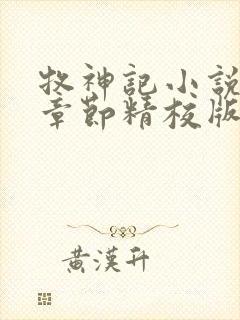 牧神記小説
章節精校版
黃漢升